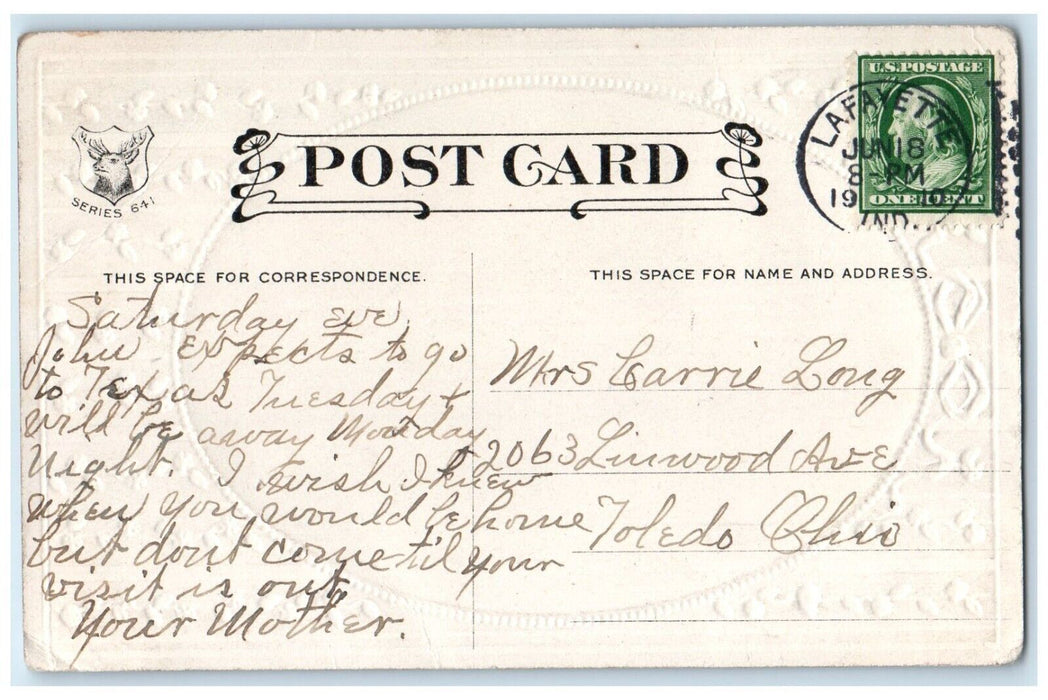 U.S. POSTAGE
LAFAYETTE
JUN 18
8-PM
1910
IND.
ONE CENT
POST CARD
SERIES 641
THIS SPACE FOR CORRESPONDENCE.
THIS SPACE FOR NAME AND ADDRESS.
Saturday eve.
John expects to go
to Texas Tuesday &
will be away Monday
Night. I wish I knew
when you would be home
but dont come til your
visit is out.
Your Mother.
Mrs Carrie Long
2063 Linwood Ave
Toledo Ohio